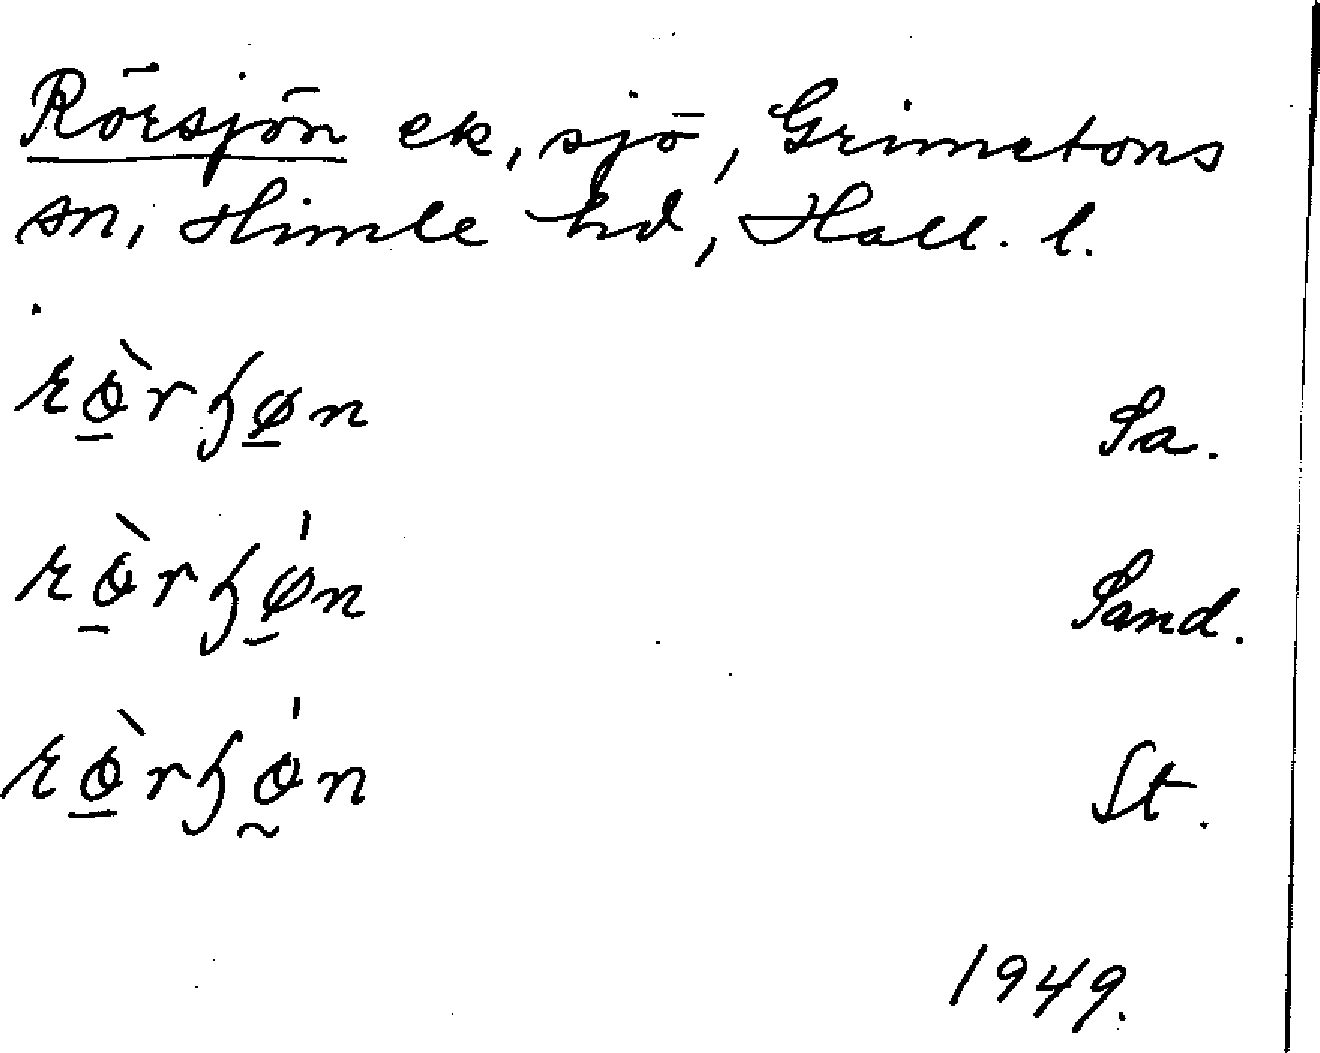 Rörsjön ek, sjö, Grimetons
sn, Himle hd, Hall. l.
rø̲̀rɧø̲n Sa.
rø̲̀rɧǿ̲n Sand.
rø̲̀rɧǿ̰n St.
1949.